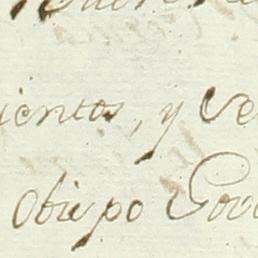 ientos, y ve
Obispo Gov